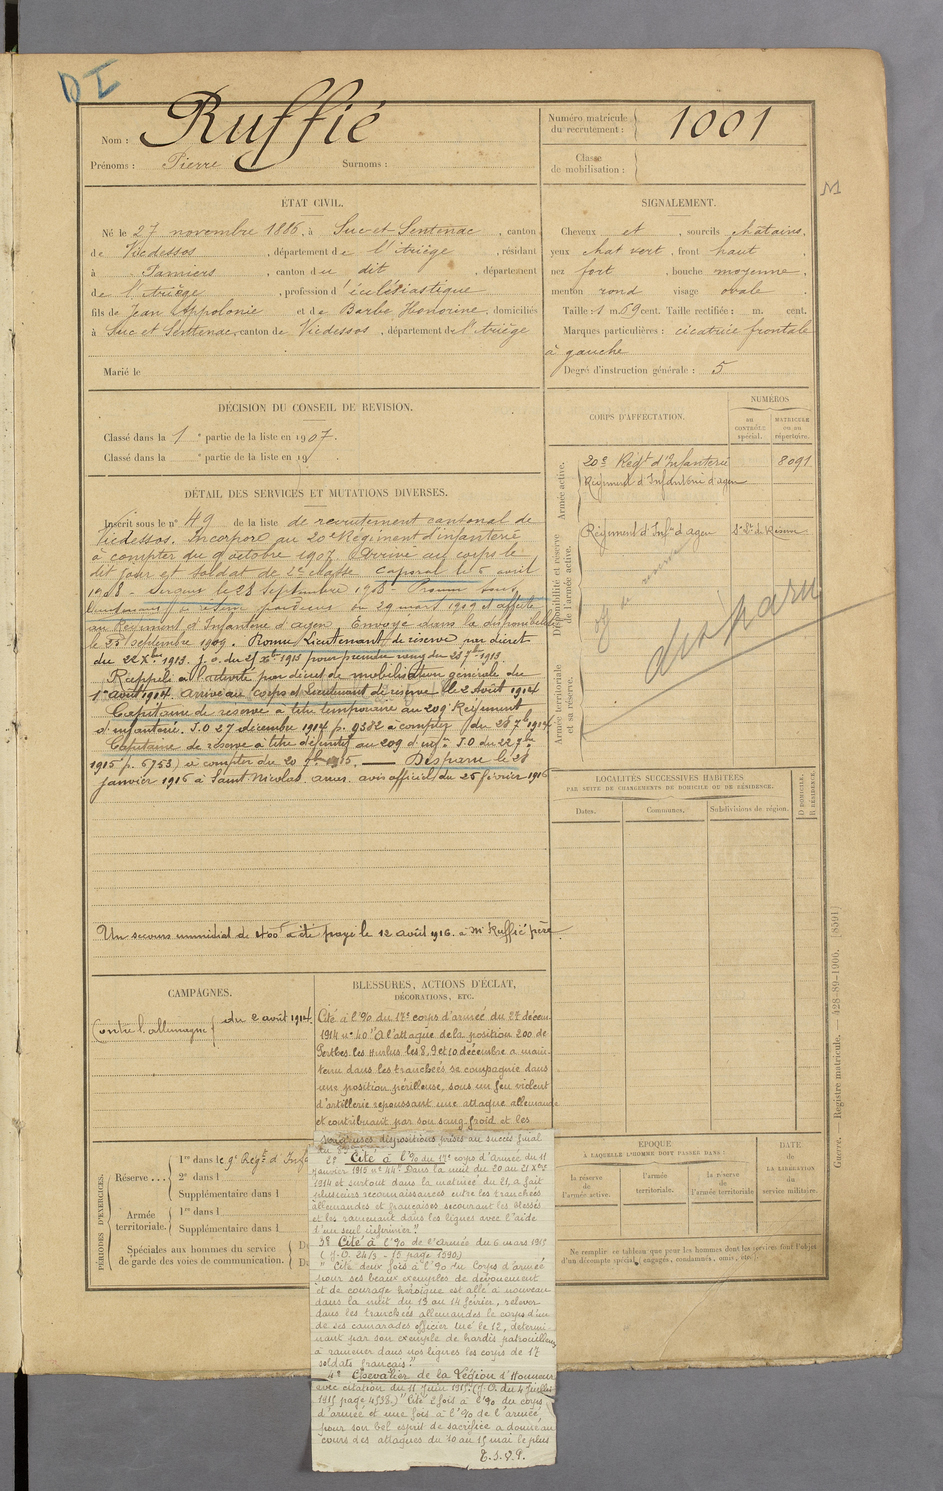 D I
Nom : Ruffié
Prénoms : Pierre Surnoms :
Numéro matricule du recrutement : 1001
Classe de mobilisation :
M
ÉTAT CIVIL.
Né le 27 novembre 1886, à Suc-et-Sentenac, canton
de Vicdessos, département de l'Ariège, résidant
à Pamiers, canton du dit, département
de l'Ariège, profession d'écclésiastique
fils de Jean Appolonie et de Barbe Honorine, domiciliés
à Suc et Sentenac, canton de Vicdessos, département de l'Ariège
Marié le
SIGNALEMENT.
Cheveux et, sourcils châtains,
yeux chat vert, front haut,
nez fort, bouche moyenne,
menton rond visage ovale.
Taille : 1 m. 69 cent. Taille rectifiée : m. cent.
Marques particulières : cicatrice frontale
à gauche
Degré d'instruction générale : 5
DÉCISION DU CONSEIL DE REVISION.
Classé dans la 1e partie de la liste en 1907.
Classé dans la e partie de la liste en 19
DÉTAIL DES SERVICES ET MUTATIONS DIVERSES.
Inscrit sous le n° 49 de la liste de recrutement cantonal de
Vicdessos. Incorporé au 20e Régiment d'infanterie
à compter du octobre 1907. Arrivé au corps le
dit jour et soldat de 2e classe. Caporal le 5 avril
1908 - Sergent le 28 Septembre 1908 - Promu Sous
Lieutenant de réserve par du 29 mars 1909 et affecté
au Régiment d'Infanterie d'Agen. Envoyé dans la disponibilité
le 25 septembre 1909. Promu Lieutenant de réserve par décret
du 22 Xbre 1913. J.O. du 25 Xbre 1913 pour prendre rang du 1913
Rappelé à l'activité par décret de mobilisation générale du
1er août 1914. Arrivé au Corps et Lieutenant de réserve le 2 Août 1914
Capitaine de réserve à titre temporaire au 209e Régiment
d'infanterie. J.O 27 décembre 1914 p. 9382 à compter du 1914
Capitaine de réserve à titre définitif au 209 d'inf. J.O. du 22
1915 p. 6753) à compter du 20 — Disparu le 28
janvier 1916 à Saint Nicolas. avis officiel du 25 février 1916
Un secours immédiat de 400f a été payé le 12 août 1916. à Mr Ruffié père
CORPS D'AFFECTATION.
NUMÉROS
AU CONTRÔLE spécial.
MATRICULE ou au répertoire.
Armée active.
20e Régt d'Infanterie 8091
Régiment d'Infanterie d'Agen
Disponibilité et réserve de l'armée active.
Régiment d'Infie d'Agen
off de réserve
disparu
Armée territoriale et sa réserve.
LOCALITÉS SUCCESSIVES HABITÉES
PAR SUITE DE CHANGEMENTS DE DOMICILE OU DE RÉSIDENCE.
Dates. Communes. Subdivisions de région. D DOMICILE. R RÉSIDENCE.
CAMPAGNES.
Contre l'Allemagne du 2 août 1914.
BLESSURES, ACTIONS D'ÉCLAT,
DÉCORATIONS, ETC.
Cité à l'% du 17e corps d'armée du 27 décem.
1914 n° 40 "A l'attaque de la position 200 de
Perthes les Hurlus les 8, 9 et 10 décembre a main-
tenu dans les tranchées sa compagnie dans
une position périlleuse, sous un feu violent
d'artillerie repoussant une attaque allemande
et contribuant par son sang froid et les
dispositions prises au succès final
2° Cité à l'% du 17e corps d'Armée du 11
janvier 1915 n° 44. Dans la nuit du 20 au 21 Xbre
1914 et surtout dans la matinée du 21, a fait
plusieurs reconnaissances entre les tranchées
allemandes et françaises secourant les blessés
et les ramenant dans les lignes avec l'aide
d'un seul infirmier."
3° Cité à l'% de l'Armée du 6 mars 1915
(J.O. 24/3 - 15 page 1590)
"Cité deux fois à l'% du Corps d'armée
pour ses beaux exemples de dévouement
et de courage héroïque est allé à nouveau
dans la nuit du 13 au 14 février, relever
dans les tranchées allemandes le corps d'un
de ses camarades officier tué le 12, détermi-
nant par son exemple de hardis patrouilleurs
à ramener dans nos lignes les corps de 17
soldats français."
4° Chevalier de la Légion d'Honneur
avec citation du 11 Juin 1915 (J.O. du 4 Juillet
1915 page 4538) "Cité 2 fois à l'% du corps
d'armée et une fois à l'% de l'armée,
pour son bel esprit de sacrifice a donné au
cours des attaques du 10 au 15 mai le plus
T.S.V.P.
PÉRIODES D'EXERCICES.
Réserve . . . . 1re dans le 9e Régt d'Infa
2e dans l
Supplémentaire dans l
Armée territoriale. 1re dans l
Supplémentaire dans l
Spéciales aux hommes du service
de garde des voies de communication.
ÉPOQUE
À LAQUELLE L'HOMME DOIT PASSER DANS :
la réserve de l'armée active.
l'armée territoriale.
la réserve de l'armée territoriale
DATE de LA LIBÉRATION du service militaire.
Ne remplir ce tableau que pour les hommes dont les services font l'objet
d'un décompte spécial (engagés, condamnés, omis, etc.).
Guerre. Registre matricule. — 428-89-1906. [8591]